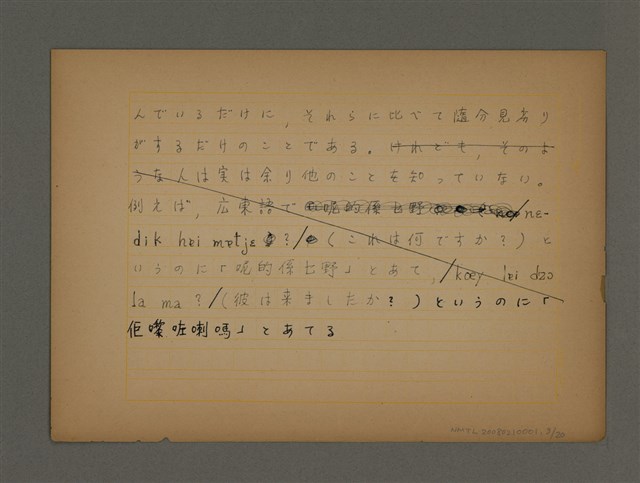 んでいるだけに，それらに比べて随分見劣り
がするだけのことである。けれども，そのよ
うな人は実は余り他のことを知っていない。
例えば，広東語で /nɛ-
dik hɐi mɐtjɛ ?/ (これは何ですか？) と
いうのに「呢的係乜野」とあて，/kœy lɐi dzɔ
la ma ?/ (彼は来ましたか？) というのに「
佢嚟咗喇嗎」とあてる
NMTL 20080210001. 3/20